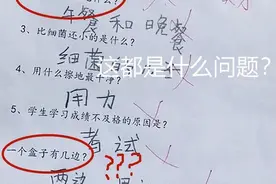 午餐和晚餐
3、比细菌还小的是什么?
细菌
这都是什么问题?
4、用什么擦地最干净?
用力
5、学生学习成绩不及格的原因是?
考试
一个盒子有几边?
???
两边